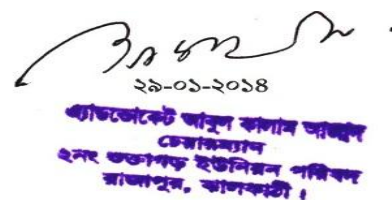 ২৯-০১-২০১৪
এ্যাডভোকেট আবুল কালাম আজাদ
চেয়ারম্যান
২নং শুক্তাগড় ইউনিয়ন পরিষদ
রাজাপুর, ঝালকাঠী।